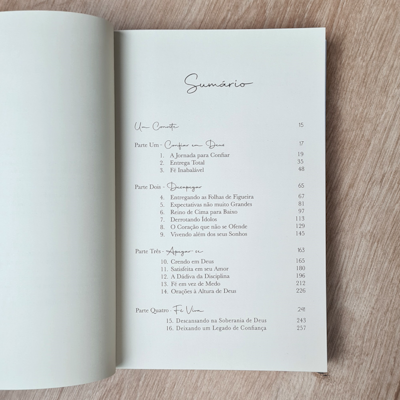 Sumário
Um Convite 15
Parte Um - Confiar em Deus 17
1. A Jornada para Confiar 19
2. Entrega Total 35
3. Fé Inabalável 48
Parte Dois - Desapegar 65
4. Entregando as Folhas de Figueira 67
5. Expectativas não muito Grandes 81
6. Reino de Cima para Baixo 97
7. Derrotando Ídolos 113
8. O Coração que não se Ofende 129
9. Vivendo além dos seus Sonhos 145
Parte Três - Apegar-se 163
10. Crendo em Deus 165
11. Satisfeita em seu Amor 180
12. A Dádiva da Disciplina 196
13. Fé em vez de Medo 212
14. Orações à Altura de Deus 226
Parte Quatro Fé Viva 241
15. Descansando na Soberania de Deus 243
16. Deixando um Legado de Confiança 257